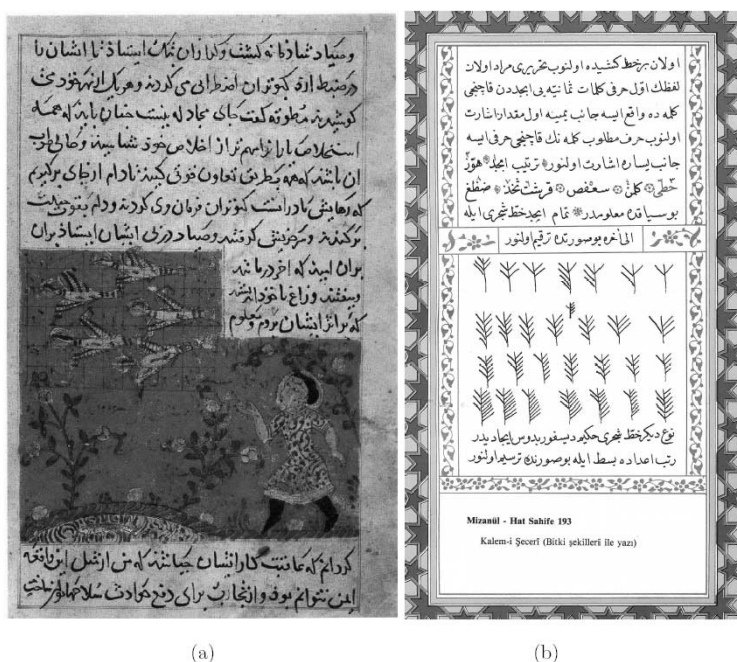 وصیاد شاذمانه گشت و گرازان بتک ایستاذ تا ایشان را
در ضبط آرد کبوتران اضطراب می کردند و هریک از بهر خود می
کوشیدند مطوقه گفت جای مجادله نیست جنان باید که همه
استخلاص یاران مهم تر از اخلاص خود شناسند و حالی صواب
آن باشد که همه بطریق تعاون قوتی کنید تا دام از جای برگیریم
که رهایش ما در انست کبوتران فرمان وی کردند و دام بقوت
برکندند و سر خویش گرفتند و صیاد در پی ایشان ایستاذ
بران امید که آخر درمانند
وبیفتند و زاغ با خود اندیشید
که بر اثر ایشان بروم و معلوم
گردانم که عاقبت کار ایشان که من از مثل این واقعه
ایمن نتوانم بود و از تجارب برای دفع حوادث سلاحها توان ساخت
(a)
اولان بر خط کشیده اولنوب تحریری مراد اولان
لفظك اول حرفی کلمات ثمانیهٔ بی ابجددن قاچنجی
کلمه ده واقع ایسه جانب یمینه اول مقدار اشارت
اولنوب حرف مطلوب کلمه نك قاچنجی حرفی ایسه
جانب یساره اشارت اولنور ترتیب ابجد هوز
حطی کلمن سعفص قرشت ثخذ ضظغ
بو سیاقده معلومدر تمام ابجد خط شجری ایله
الی آخره بو صورتده ترقیم اولنور
نوع دیکر خط شجری حکیم دیسقوریدوس ایجادیدر
رتب اعداده بسط ایله بو صورتده ترسیم اولنور
Mizanül - Hat Sahife 193
Kalem-i Şecerî (Bitki şekilleri ile yazı)
(b)